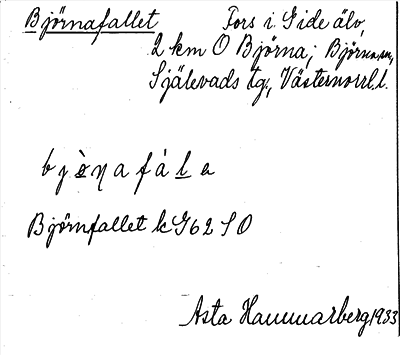 Björnafallet Fors i Gide älv,
2 km O Björna; Björna sn,
Själevads tg., Västernorrl. l.
bjò̤ŋafàl̲a
Björnfallet kG62SO
Asta Hammarberg 1933